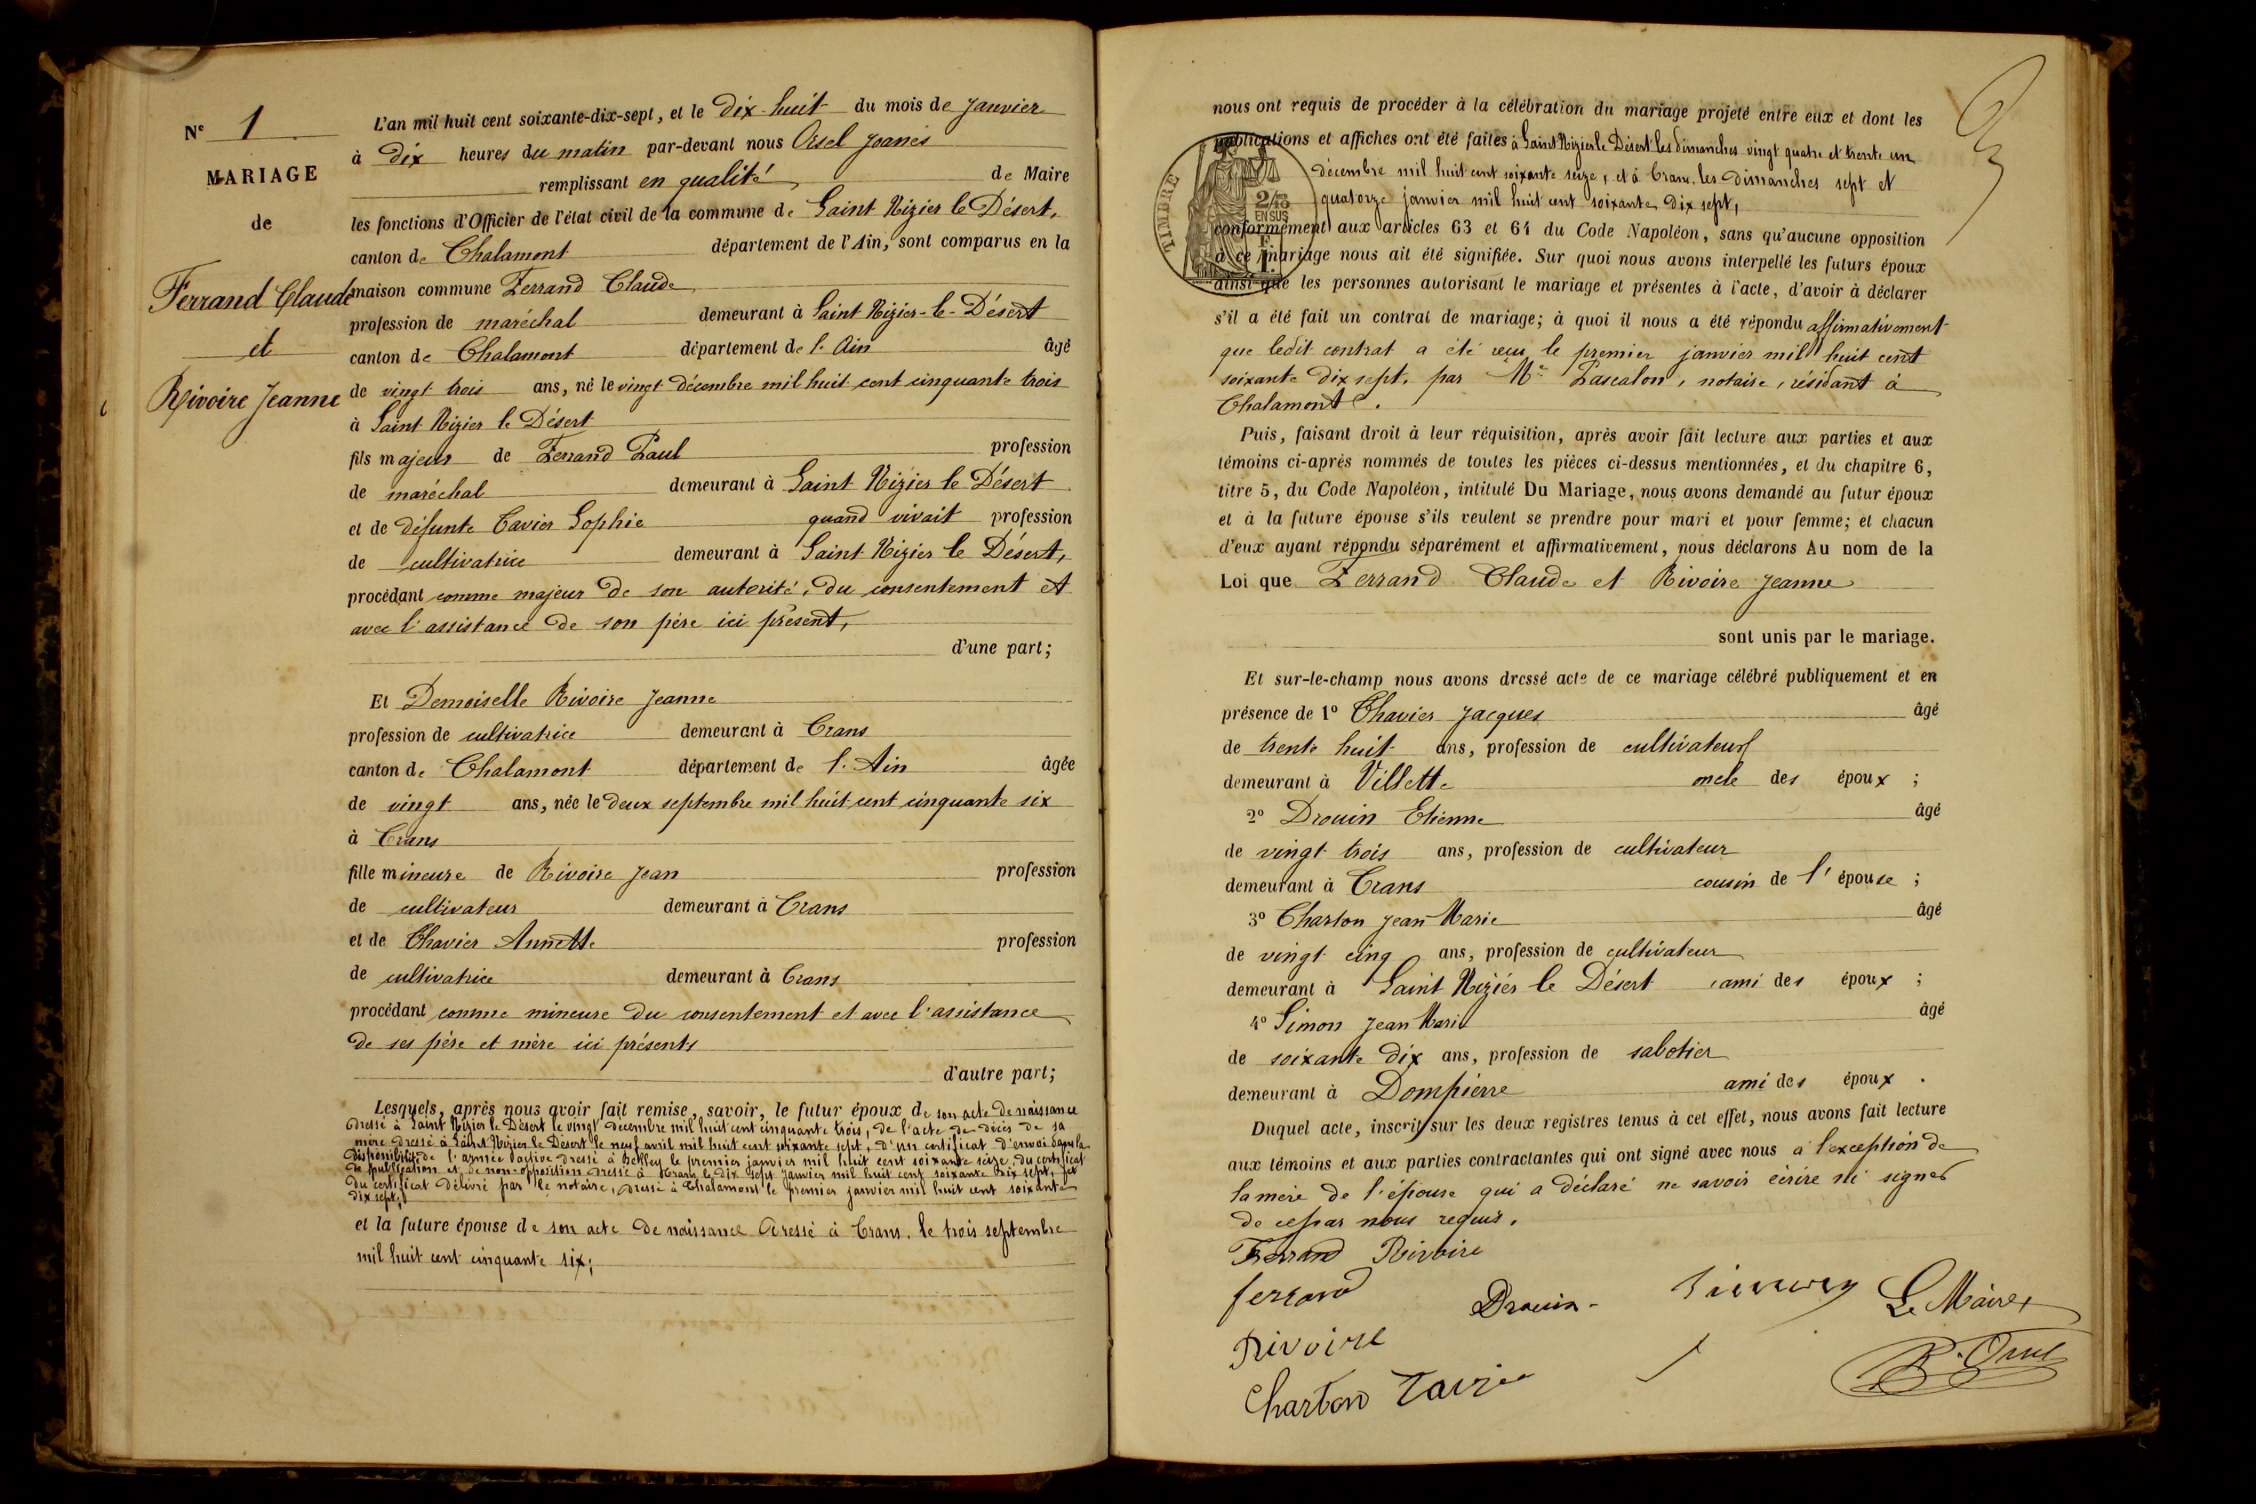 Nº 1
MARIAGE
de
Ferrand Claude
et
Rivoire Jeanne
L'an mil huit cent soixante-dix-sept, et le Dix-huit du mois de Janvier
à dix heures du matin par-devant nous Orsel Joanès
remplissant en qualité de Maire
les fonctions d'Officier de l'état civil de la commune de Saint Nizier le Désert,
canton de Chalamont département de l'Ain, sont comparus en la
maison commune Ferrand Claude
profession de maréchal demeurant à Saint Nizier-le-Désert
canton de Chalamont département de l'Ain âgé
de vingt trois ans, né le vingt décembre mil huit cent cinquante trois
à Saint Nizier le Désert
fils majeur de Ferrand Paul profession
de maréchal demeurant à Saint Nizier le Désert
et de défunte Tavier Sophie quand vivait profession
de cultivatrice demeurant à Saint Nizier le Désert,
procédant comme majeur de son autorité, du consentement et
avec l'assistance de son père ici présent,
d'une part;
Et Demoiselle Rivoire Jeanne
profession de cultivatrice demeurant à Crans
canton de Chalamont département de l'Ain âgée
de vingt ans, née le deux septembre mil huit cent cinquante six
à Crans
fille mineure de Rivoire Jean profession
de cultivateur demeurant à Crans
et de Chavier Annette profession
de cultivatrice demeurant à Crans
procédant comme mineure du consentement et avec l'assistance
de ses père et mère ici présents
d'autre part;
Lesquels, après nous avoir fait remise, savoir, le futur époux de son acte de naissance
dressé à Saint Nizier le Désert le vingt décembre mil huit cent cinquante trois, de l'acte de décès de sa
mère dressé à Saint Nizier le Désert le neuf avril mil huit cent soixante sept, d'un certificat d'envoi dans la
disponibilité de l'armée d'active dressé à Belley le premier janvier mil huit cent soixante seize, du certificat
de publication et de non-opposition dressé à Crans le dix sept janvier mil huit cent soixante dix sept, et
du certificat délivré par le notaire, dressé à Chalamont le premier janvier mil huit cent soixante
dix sept,
et la future épouse de son acte de naissance dressé à Crans, le trois septembre
mil huit cent cinquante six;
nous ont requis de procéder à la célébration du mariage projeté entre eux et dont les
publications et affiches ont été faites à Saint Nizier le Désert les dimanches vingt quatre et trente un
décembre mil huit cent soixante seize, et à Crans, les dimanches sept et
quatorze janvier mil huit cent soixante dix sept,
TIMBRE
2/10
EN SUS
conformément aux articles 63 et 64 du Code Napoléon, sans qu'aucune opposition
à ce mariage nous ait été signifiée. Sur quoi nous avons interpellé les futurs époux
ainsi que les personnes autorisant le mariage et présentes à l'acte, d'avoir à déclarer
s'il a été fait un contrat de mariage; à quoi il nous a été répondu affirmativement
que ledit contrat a été reçu le premier janvier mil huit cent
soixante dix sept, par Me Pascalon, notaire, résidant à
Chalamont.
Puis, faisant droit à leur réquisition, après avoir fait lecture aux parties et aux
témoins ci-après nommés de toutes les pièces ci-dessus mentionnées, et du chapitre 6,
titre 5, du Code Napoléon, intitulé Du Mariage, nous avons demandé au futur époux
et à la future épouse s'ils veulent se prendre pour mari et pour femme; et chacun
d'eux ayant répondu séparément et affirmativement, nous déclarons Au nom de la
Loi que Ferrand Claude et Rivoire Jeanne
sont unis par le mariage.
Et sur-le-champ nous avons dressé acte de ce mariage célébré publiquement et en
présence de 1º Chavier Jacques âgé
de trente huit ans, profession de cultivateur
demeurant à Villette oncle des époux ;
2º Drouin Etienne âgé
de vingt trois ans, profession de cultivateur
demeurant à Crans cousin de l'épouse ;
3º Charton Jean Marie âgé
de vingt cinq ans, profession de cultivateur
demeurant à Saint Nizier le Désert, ami des époux ;
4º Simon Jean Marie âgé
de soixante dix ans, profession de sabotier
demeurant à Dompierre ami des époux .
Duquel acte, inscrit sur les deux registres tenus à cet effet, nous avons fait lecture
aux témoins et aux parties contractantes qui ont signé avec nous à l'exception de
la mère de l'épouse qui a déclaré ne savoir écrire ni signer
de ce par nous requis.
Ferrand Rivoire
ferrand Drouin Le Maire,
Rivoire
Charton